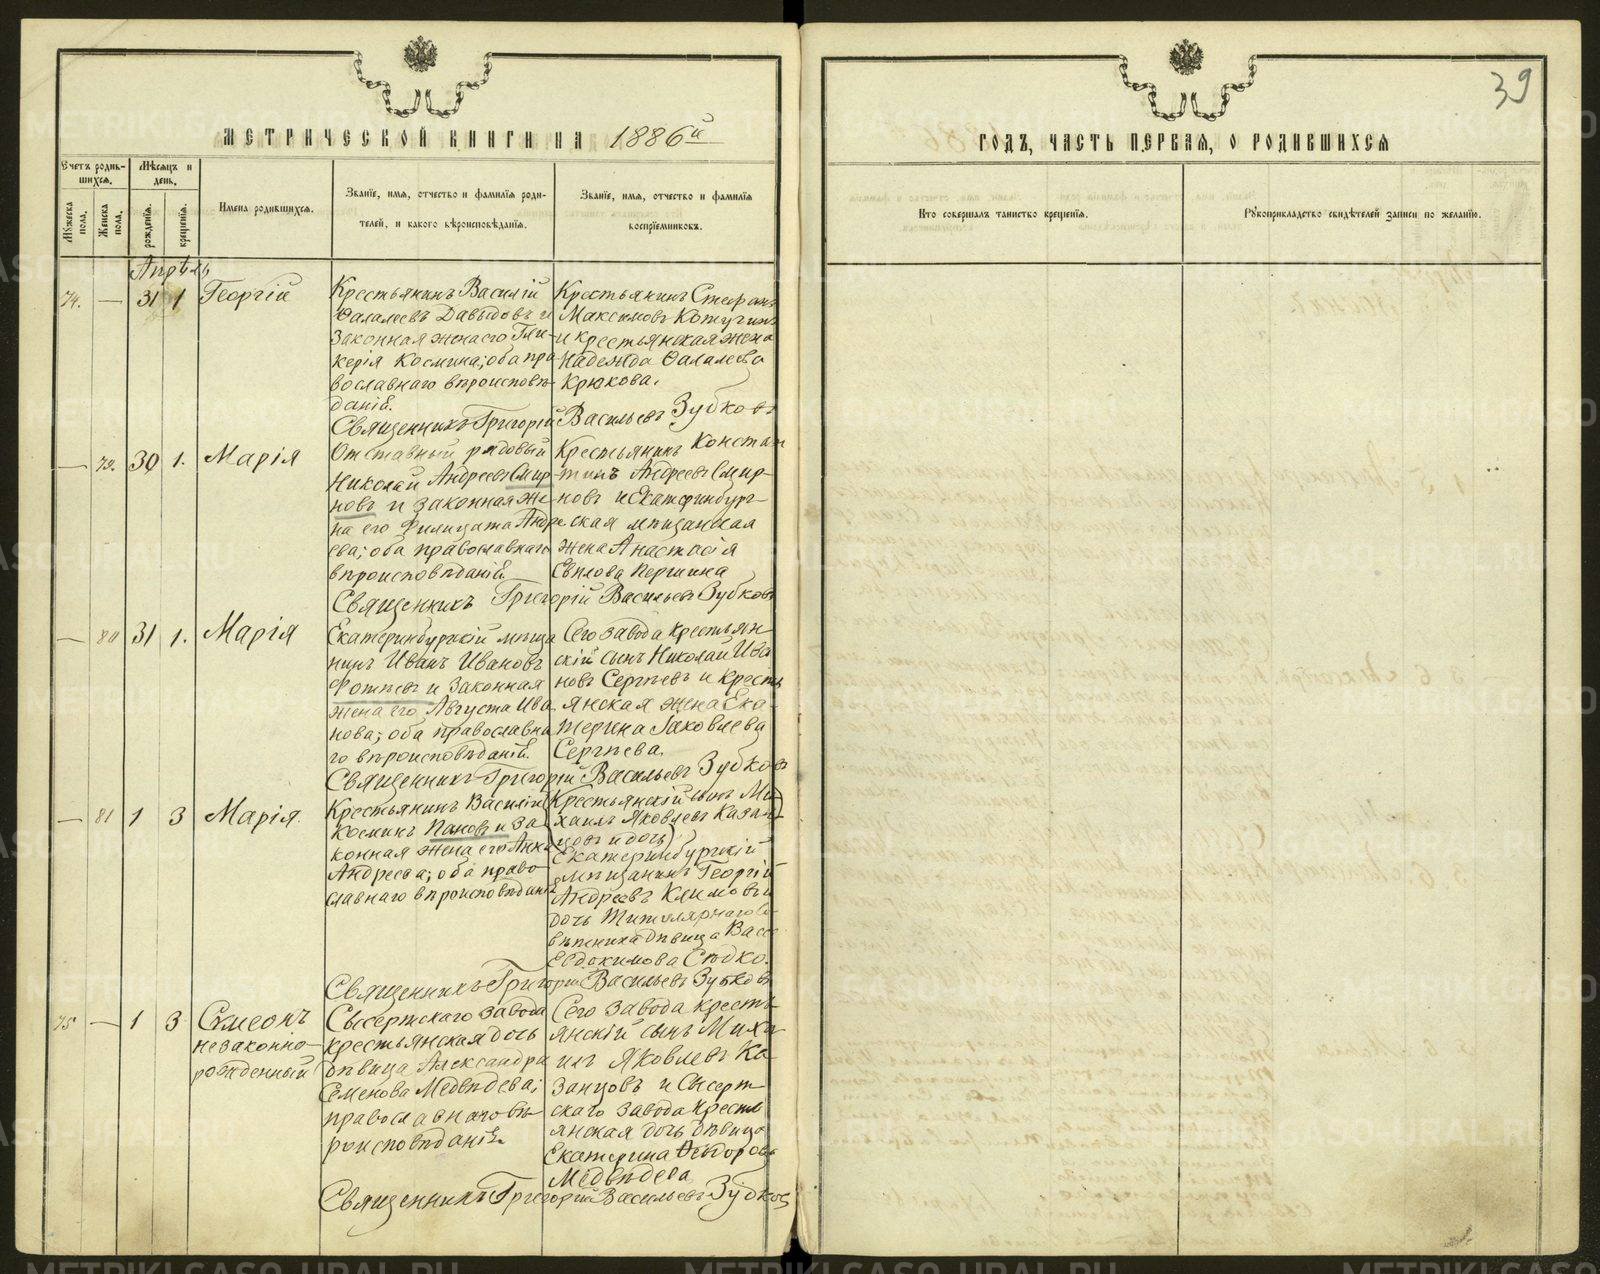 МЕТРИЧЕСКОЙ КНИГИ НА 1886й
Счетъ родив-
шихся.
Мѣсяцъ и
день.
Мужеска пола.
Женска пола.
рожденія.
крещенія.
Имена родившихся.
Званіе, имя, отчество и фамилія роди-
телей, и какого вѣроисповѣданія.
Званіе, имя, отчество и фамилія
воспріемниковъ.
Апрѣль
74. — 31 1 Георгій
Крестьянинъ Василій
Фалалеевъ Давыдовъ и
законная жена его Гли-
керія Космина; оба пра
вославнаго вѣроисповѣ-
даній.
Крестьянинъ Стефанъ
Максимовъ Котугинъ
и крестьянская жена
Надежда Фалалеева
Крюкова.
Священникъ Григорій Васильевъ Зубковъ
— 79. 30 1. Марія
Отставный рядовый
Николай Андреевъ Смир-
новъ и законная же-
на его Филицата Андре
ева; оба православнаго
вѣроисповѣданій.
Крестьянинъ Констан
тинъ Андреевъ Смир-
новъ и Екатеринбург-
ская мѣщанская
жена Анастасія
Першина
Священникъ Григорій Васильевъ Зубковъ
— 80 31 1. Марія
Екатеринбургскій мѣща
нинъ Иванъ Ивановъ
Фотѣевъ и законная
жена его Августа Ива
нова; оба православна
го вѣроисповѣданій.
Сего завода крестьян-
скій сынъ Николай Ива
новъ Сергѣевъ и кресть
янская жена Ека-
терина Іаковлева
Сергѣева.
Священникъ Григорій Васильевъ Зубковъ
— 81 1 3 Марія.
Крестьянинъ Василій
Косминъ Пановъ и за
конная жена его Анна
Андреева; оба право-
славнаго вѣроисповѣданій
(Крестьянскій сынъ Ми
хаилъ Яковлевъ Казан
цовъ и дочь)
Екатеринбургскій
мѣщанинъ Георгій
Андреевъ Климовъ и
дочь Титулярнаго Со
вѣтника дѣвица Васс
Евдокимова
Священникъ Григорій Васильевъ Зубковъ
75 — 1 3 Симеонъ
незаконно-
рожденный
Сысертскаго завода
крестьянская дочь
дѣвица Александра
Семенова Медвѣдева;
православнаго вѣ-
роисповѣданій.
Сего завода кресть
янскій сынъ Миха
илъ Яковлевъ Ка-
занцовъ и Сысерт-
скаго завода крестья
янская дочь дѣвица
Екатерина Ѳедорова
Медвѣдева
Священникъ Григорій Васильевъ Зубковъ
39
ГОДЪ, ЧАСТЬ ПЕРВАЯ, О РОДИВШИХСЯ
Кто совершалъ таинство крещенія.
Рукоприкладство свидѣтелей записи по желанію.